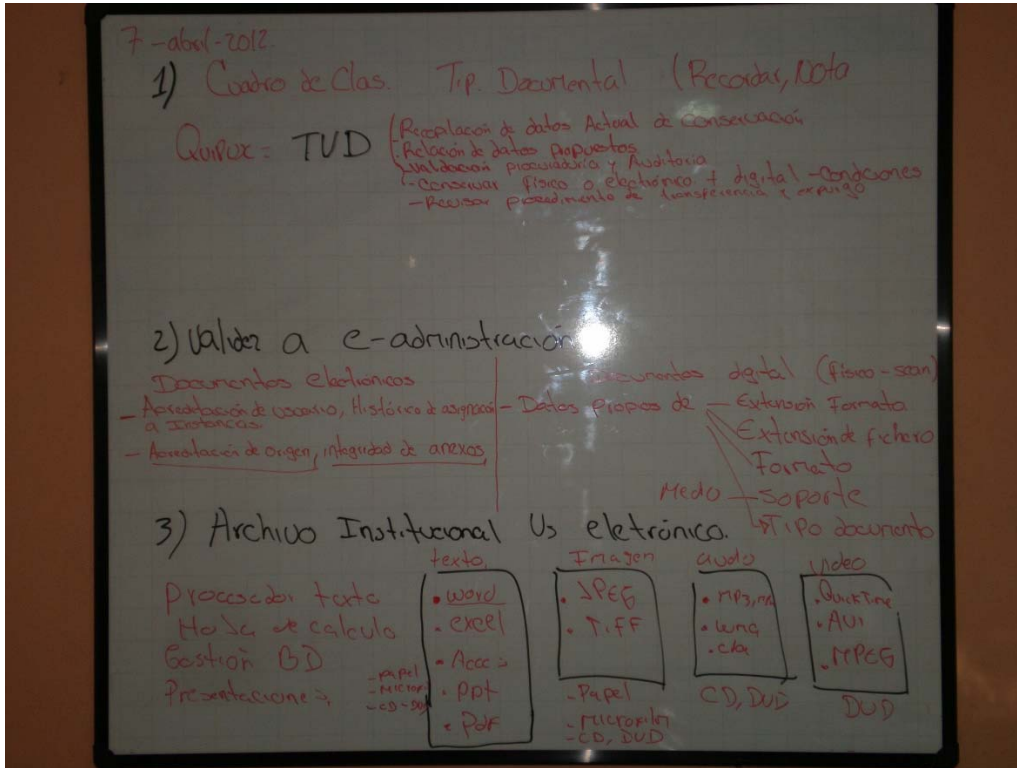 7-abril-2012.
1) Cuadro de Clas. Tip. Documental (Recordar, Nota
Quipux = TVD
- Recopilación de datos Actual de conservación
- Relación de datos propuestos
- Validación procuraduría y Auditoria
- Conservar físico o electrónico + digital - Condiciones
- Revisar procedimiento de transferencia y expurgo
2) Validez a e-administración
Documentos electrónicos
- Acreditación de usuario, Histórico de asignació
a Instancias
- Acreditación de origen, integridad de anexos
Documentos digital (físico-scan)
- Datos propios de - Extensión Formato
Extensión de fichero
Formato
Medio - Soporte
Tipo documento
3) Archivo Institucional Vs eletrónico.
Procesador texto
Hoja de calculo
Gestión BD
Presentaciones
- papel
- Microf
- CD-DVD
texto
• word
• excel
• Acces
• Ppt
• Pdf
Imagen
• JPEG
• TIFF
- Papel
- Microfilm
- CD, DVD
audio
• MP3,
• wma
• cda
CD, DVD
Video
• QuickTime
• AVI
• MPEG
DVD